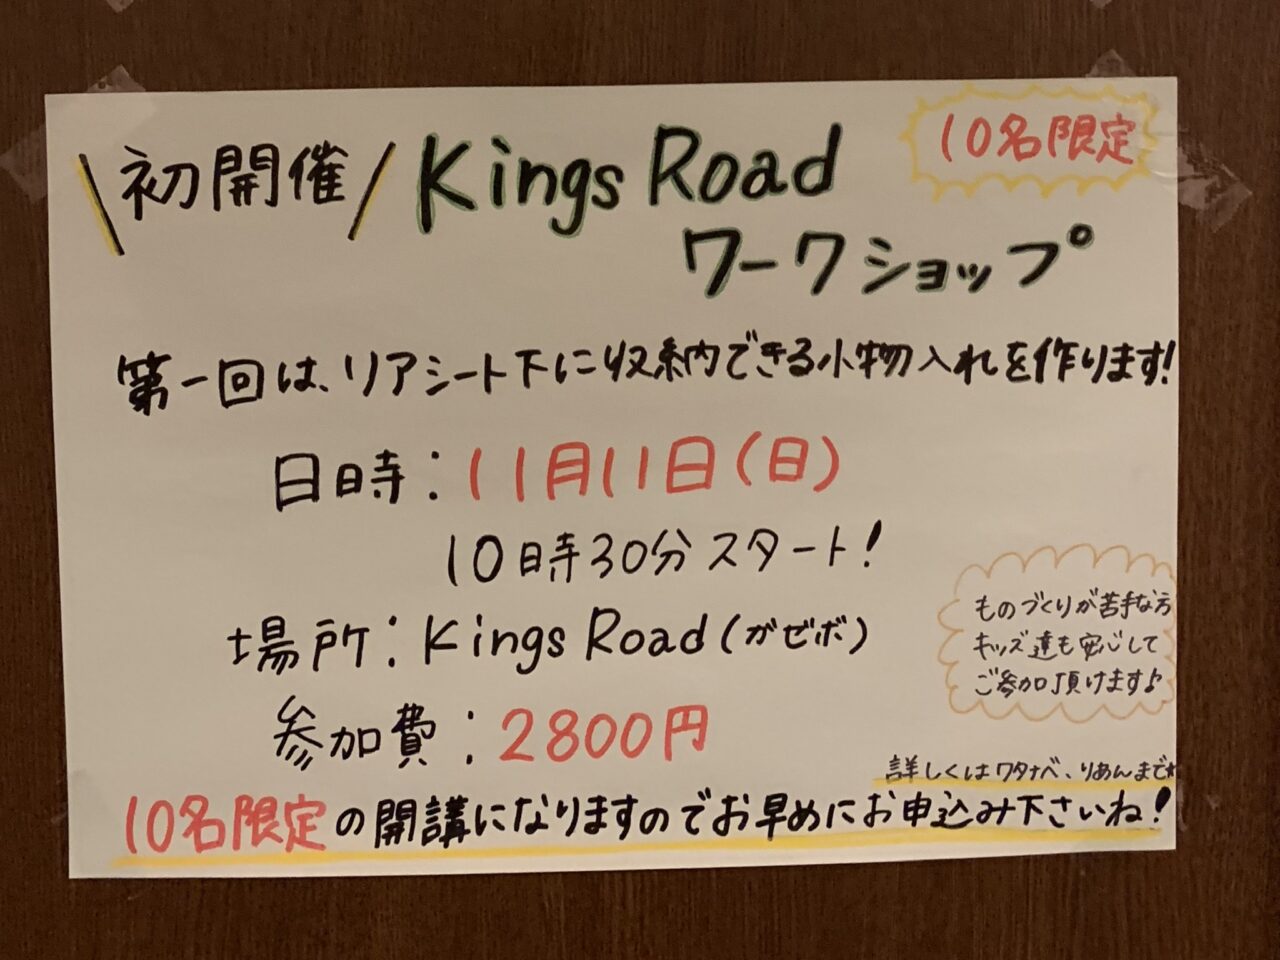 \初開催/ Kings Road
ワークショップ
10名限定
第一回は、リアシート下に収納できる小物入れを作ります!
日時:11月11日(日)
10時30分スタート!
場所:Kings Road(ガゼボ)
参加費:2800円
ものづくりが苦手な方
キッズ達も安心して
ご参加頂けます♪
詳しくはワタナベ、りあんまで★
10名限定の開講になりますのでお早めにお申込み下さいね!